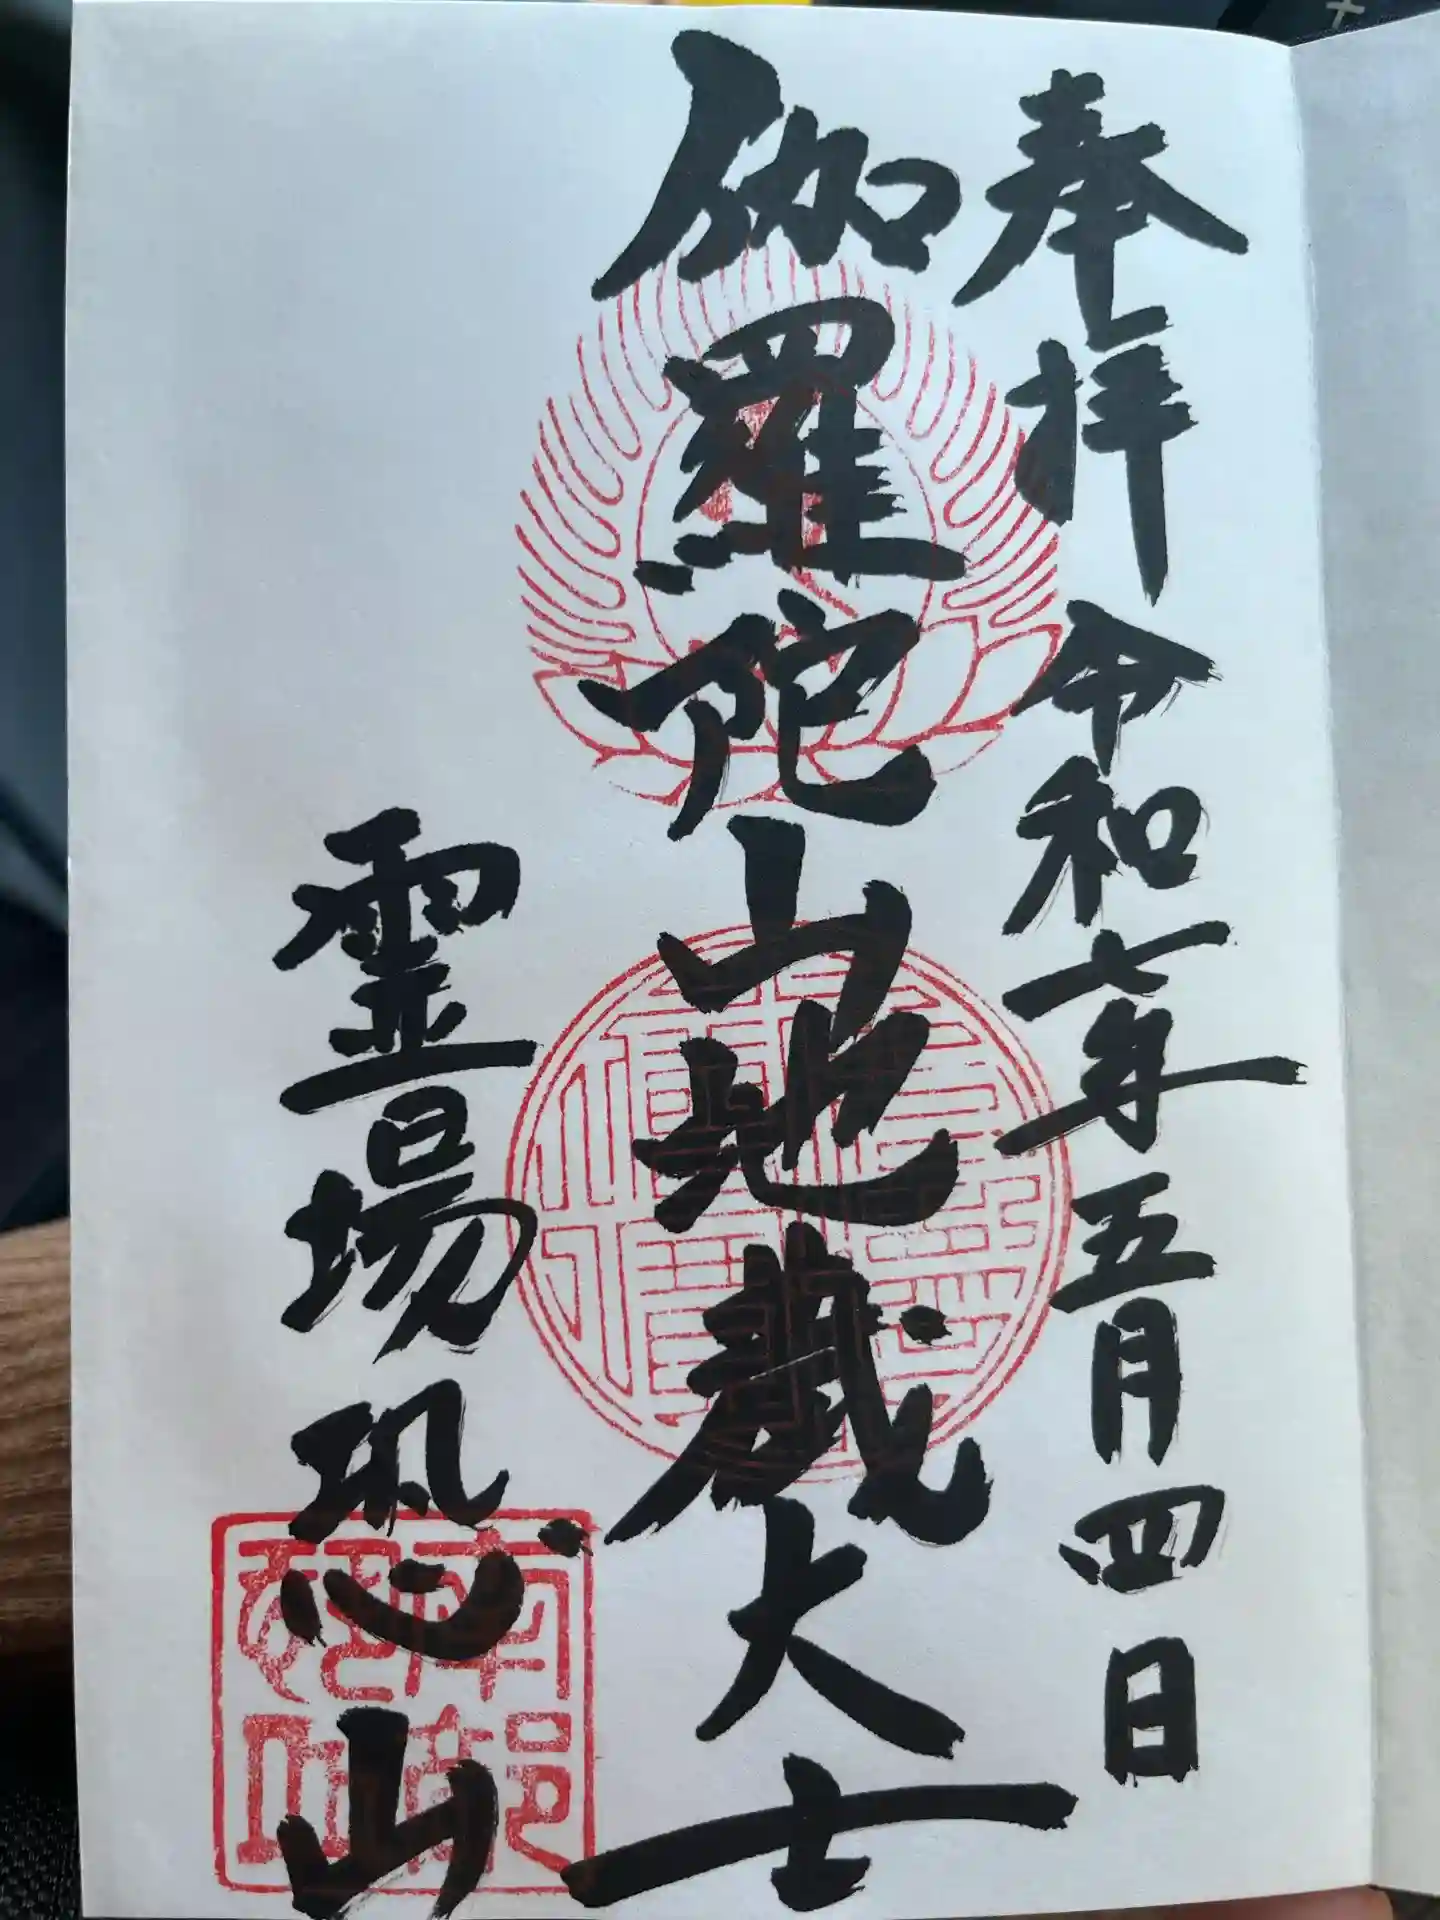 奉拝 令和七年五月四日
伽羅陀山地蔵大士
霊場恐山
南部
恐山